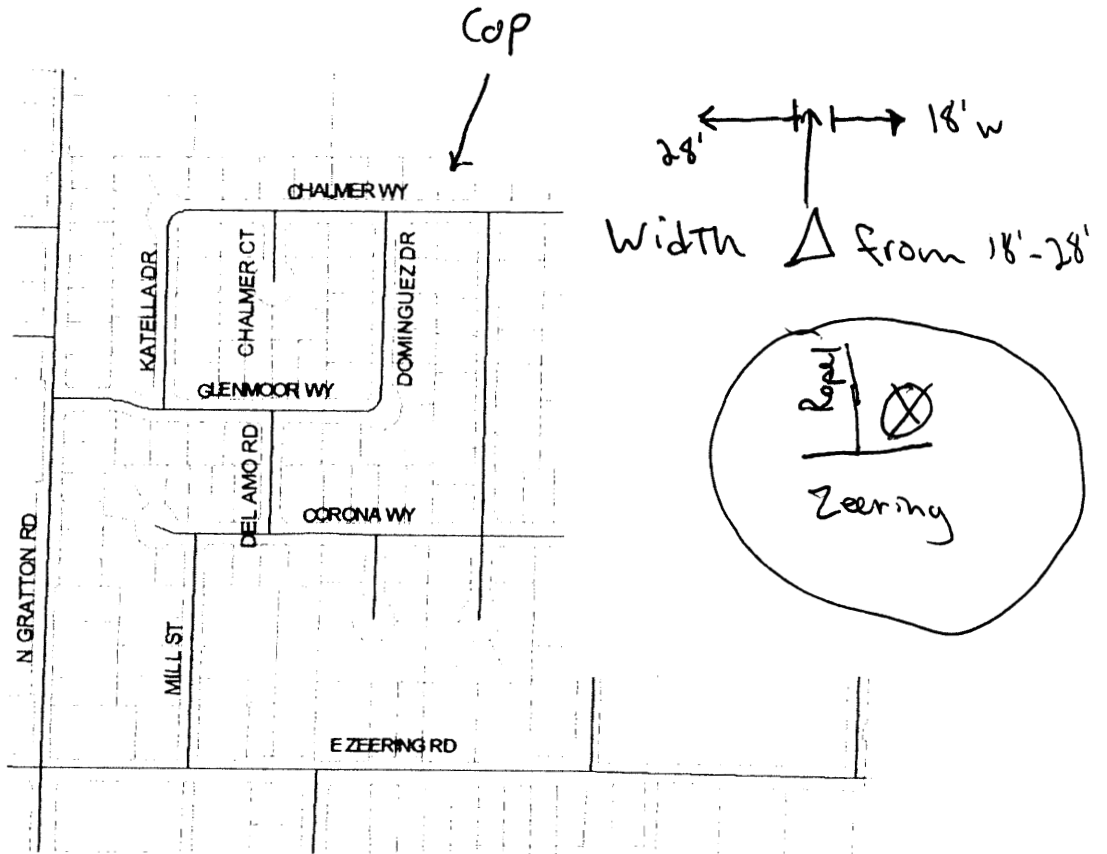 Cap
28'
18' w
Width Δ from 18'-28'
CHALMER WY
KATELLA DR
CHALMER CT
DOMINGUEZ DR
GLENMOOR WY
DEL AMO RD
CORONA WY
N GRATTON RD
MILL ST
E ZEERING RD
Zeering